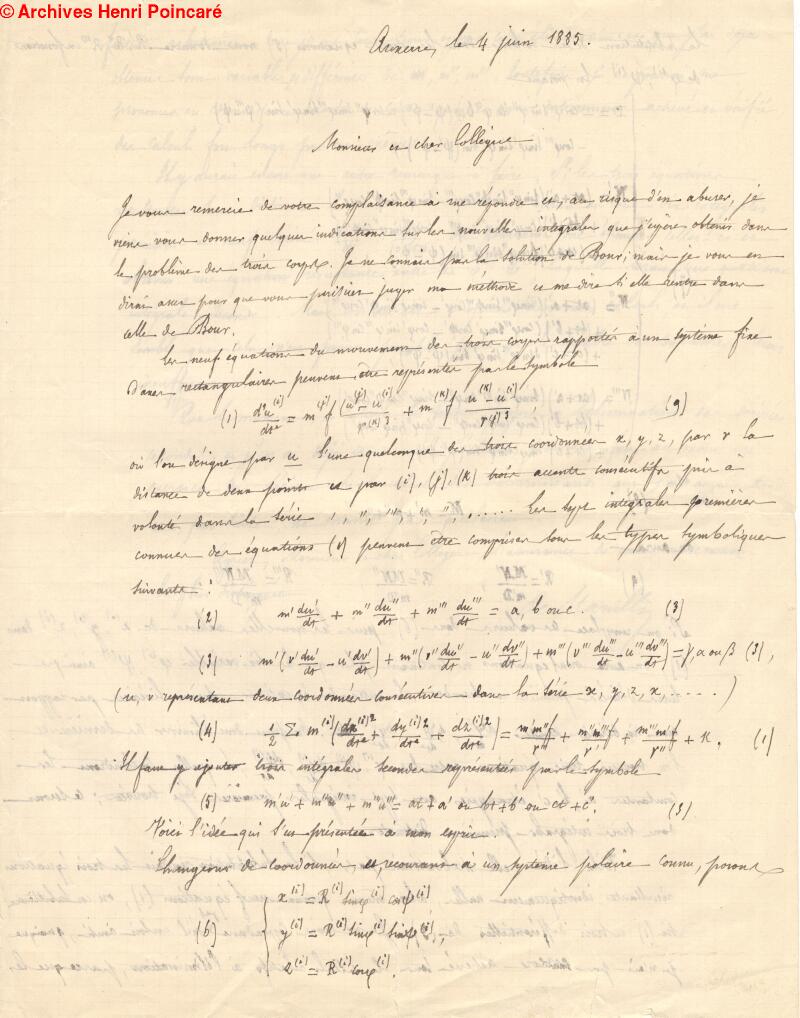 © Archives Henri Poincaré
Auxerre, le 4 juin 1885.
Monsieur et cher Collègue
Je vous remercie de votre complaisance à me répondre et, au risque d'en abuser, je
viens vous donner quelques indications sur les nouvelles intégrales que j'espère obtenir dans
le problème des trois corps. Je ne connais pas la solution de Bour; mais je vous en
dirai assez pour que vous puissiez juger ma méthode et me dire si elle rentre dans
celle de Bour.
Les neuf équations du mouvement des trois corps rapportés à un système fixe
d'axes rectangulaires peuvent être représentées par le symbole
(1) d²u⁽ⁱ⁾/dt² = m⁽ʲ⁾f (u⁽ʲ⁾ - u⁽ⁱ⁾)/r⁽ᵏ⁾³ + m⁽ᵏ⁾f (u⁽ᵏ⁾ - u⁽ⁱ⁾)/r⁽ʲ⁾³ (9)
où l'on désigne par u l'une quelconque des trois coordonnées x, y, z, par r la
distance de deux points et par (i), (j), (k) trois accents consécutifs pris à
volonté dans la série ', '', ''', ', '', ...... Les sept intégrales premières
connues des équations (1) peuvent être comprises sous les types symboliques
suivants :
(2) m' du'/dt + m'' du''/dt + m''' du'''/dt = a, b ou c. (3)
(3) m'(v' du'/dt - u' dv'/dt) + m''(v'' du''/dt - u'' dv''/dt) + m'''(v''' du'''/dt - u''' dv'''/dt) = γ, α ou β (3),
(u, v représentant deux coordonnées consécutives dans la série x, y, z, x, .....)
(4) 1/2 Σ m⁽ⁱ⁾(dx⁽ⁱ⁾²/dt² + dy⁽ⁱ⁾²/dt² + dz⁽ⁱ⁾²/dt²) = m'm''f/r''' + m''m'''f/r' + m'''m'f/r'' + K. (1)
Il faut y ajouter trois intégrales secondes représentées par le symbole
(5) m'u' + m''u'' + m'''u''' = at + a' ou bt + b' ou ct + c'. (3)
Voici l'idée qui s'est présentée à mon esprit.
Changeons de coordonnées et, recourant à un système polaire connu, posons
x⁽ⁱ⁾ = R⁽ⁱ⁾ sinφ⁽ⁱ⁾ cosψ⁽ⁱ⁾
(6) y⁽ⁱ⁾ = R⁽ⁱ⁾ sinφ⁽ⁱ⁾ sinψ⁽ⁱ⁾,
z⁽ⁱ⁾ = R⁽ⁱ⁾ cosφ⁽ⁱ⁾.